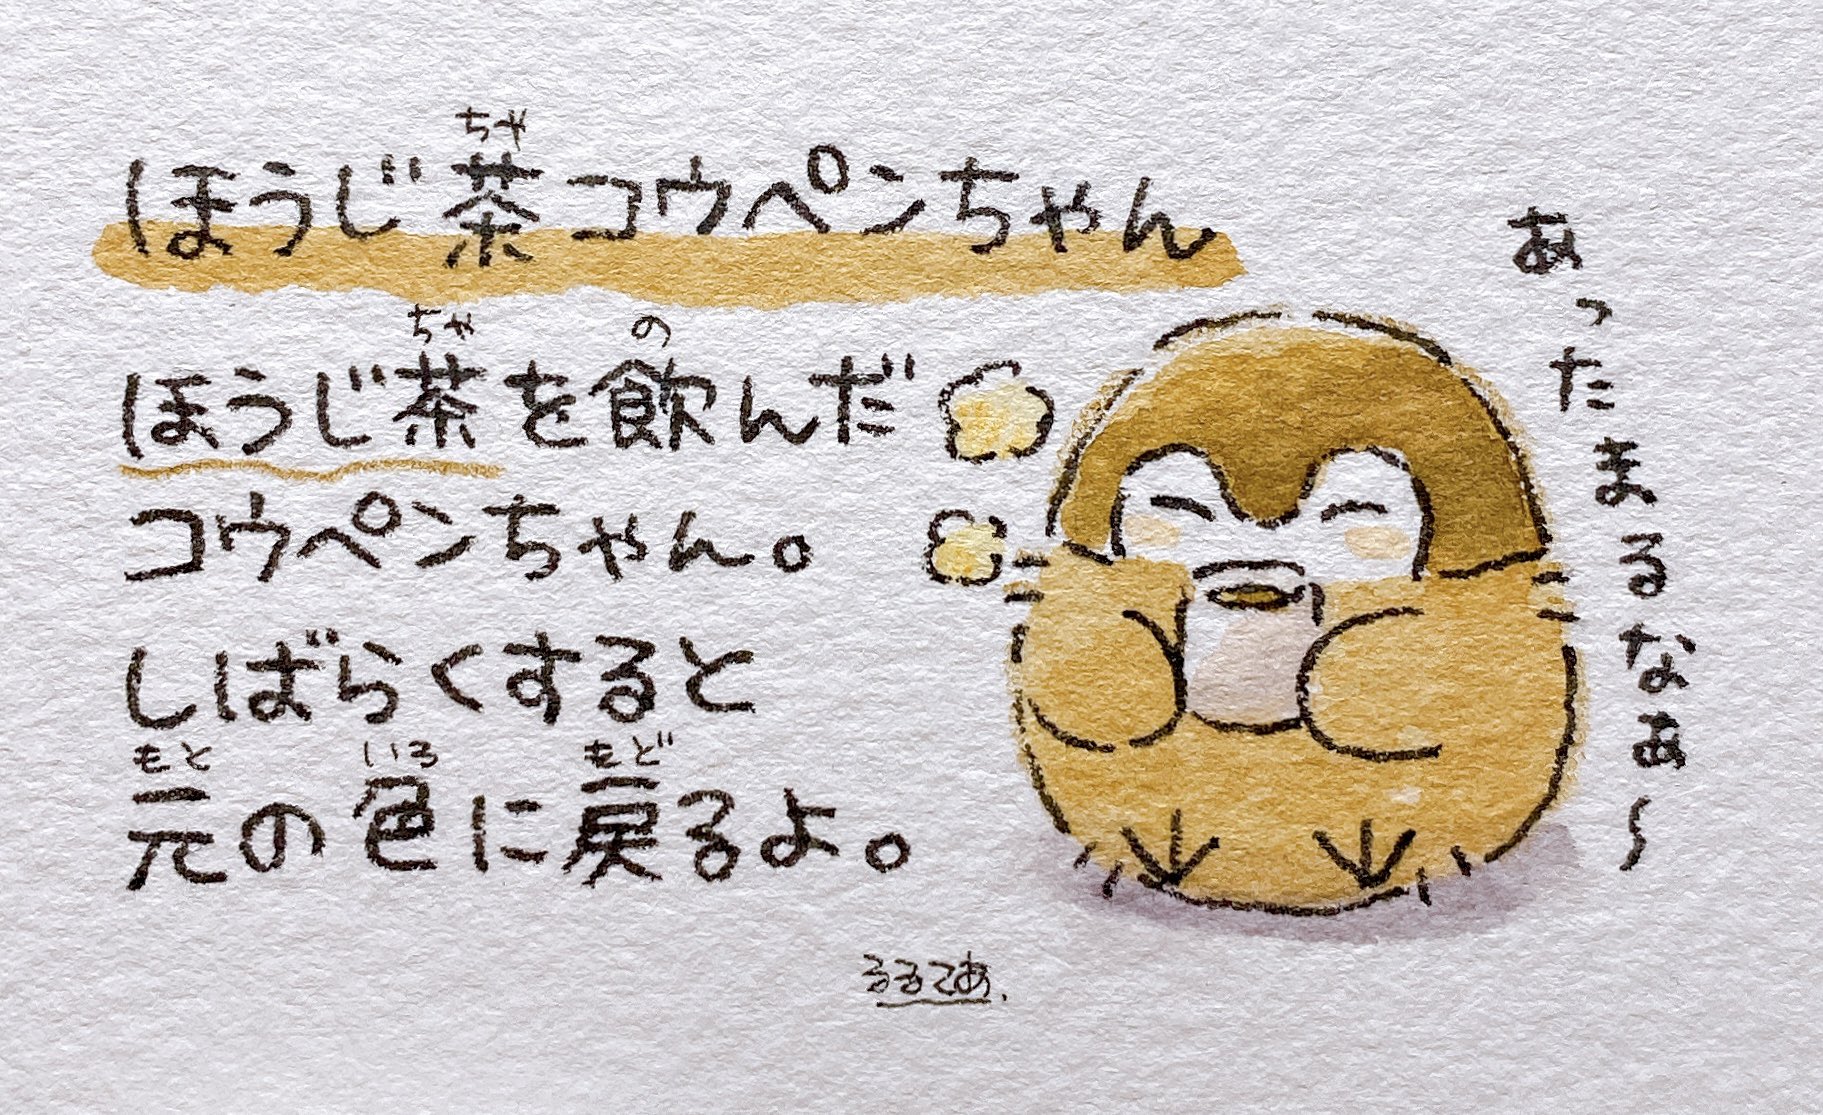 ほうじ茶コウペンちゃん
ちゃ
ほうじ茶を飲んだ
ちゃ の
コウペンちゃん。
しばらくすると
元の色に戻るよ。
もと いろ もど
あったまるなあ〜
るるてあ.